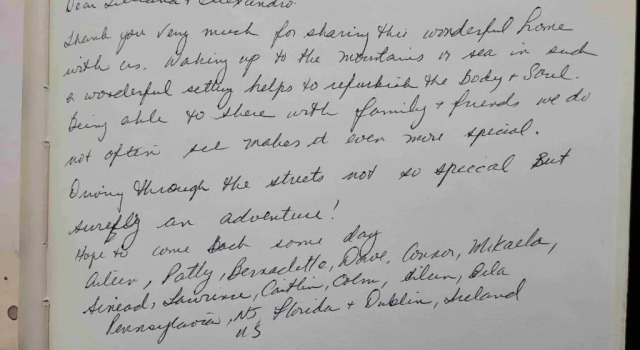 Dear Liliana + Alexandro.
Thank you very much for sharing this wonderful home
with us. Waking up to the mountains or sea in such
a wonderful setting helps to refurbish the Body + Soul.
Being able to share with family + friends we do
not often see makes it even more special.
Driving through the streets not so special But
surefly an adventure!
Hope to come back some day
Aileen, Patty, Bernadette, Dave, Connor, Mikaela,
Sinead, Lawrence, Caitlin, Colm, Eileen,
Pennsylavia, NJ, Florida + Dublin, Ireland
US